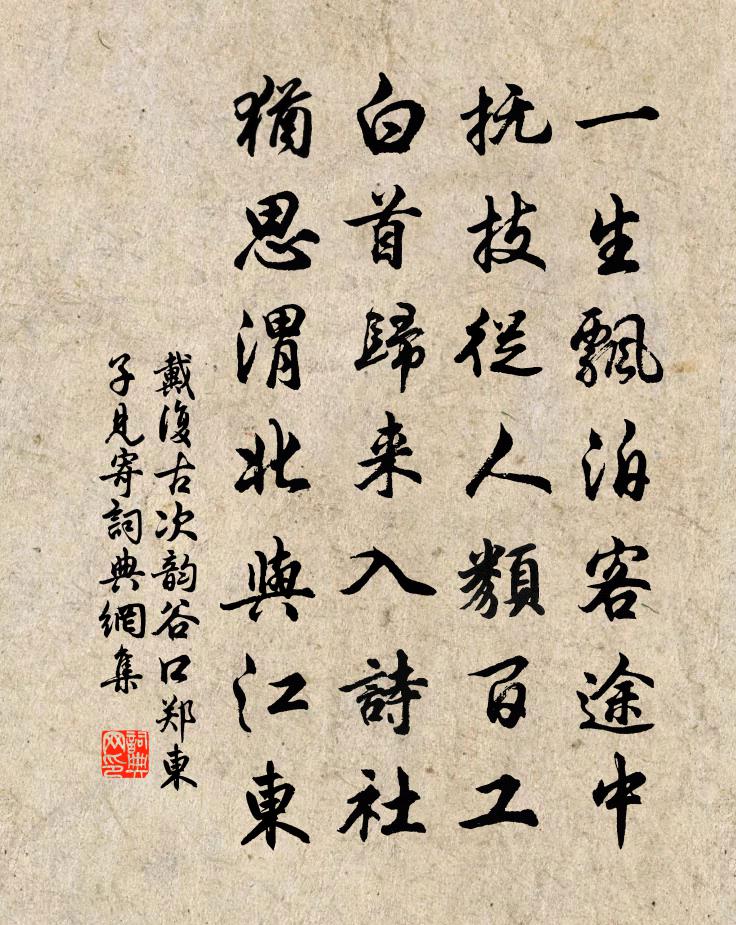 一生飄泊客途中
抚技從人類百工
白首歸来入詩社
猶思渭北與江東
戴復古次韵谷口郑東
子見寄詞典網集
詞典网印